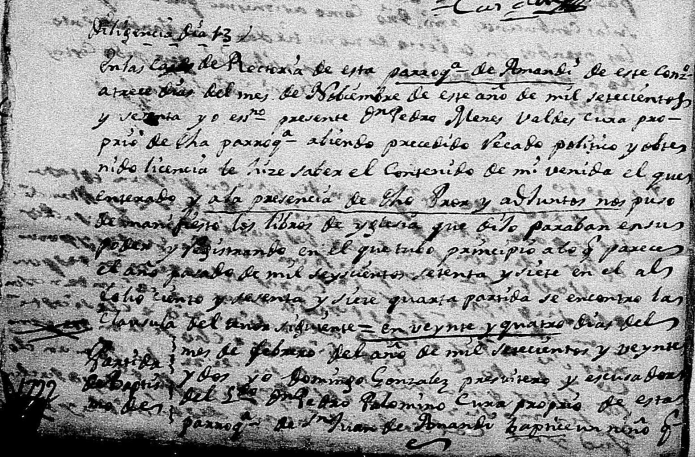 Diligencia día 13
En las Casas de Rectoria de esta parroq.ª de Amandi de este Conz.º
a trece dias del mes de Nobiembre de este año de mil setecientos
y setenta yo ess.no presente Dn Pedro Menes Valdes Cura pro-
prio de dha parroq.ª abiendo precedido recado politico y obte
nido licencia le hize saber el Contenido de mi venida el que
enterado y a la presencia de dho Pror y adjuntos nos puso
de manifiesto los libros de yglesia que dijo paraban en su
poder y registrando en el que tubo principio a lo q parece
el año pasado de mil seyscientos setenta y siete en el al
folio ciento y sesenta y siete quarta partida se encontro la
Clausula del tenor siguiente = en veynte y quatro dias del
mes de febrero del año de mil setecientos y veynte
y dos yo Domingo Gonzalez presvitero y escusador
del Dn Pedro Palomino Cura proprio de esta
parroq.ª de Sn Juan de Amandi baptice un niño q
Partida
de Baptis
mo de
1722